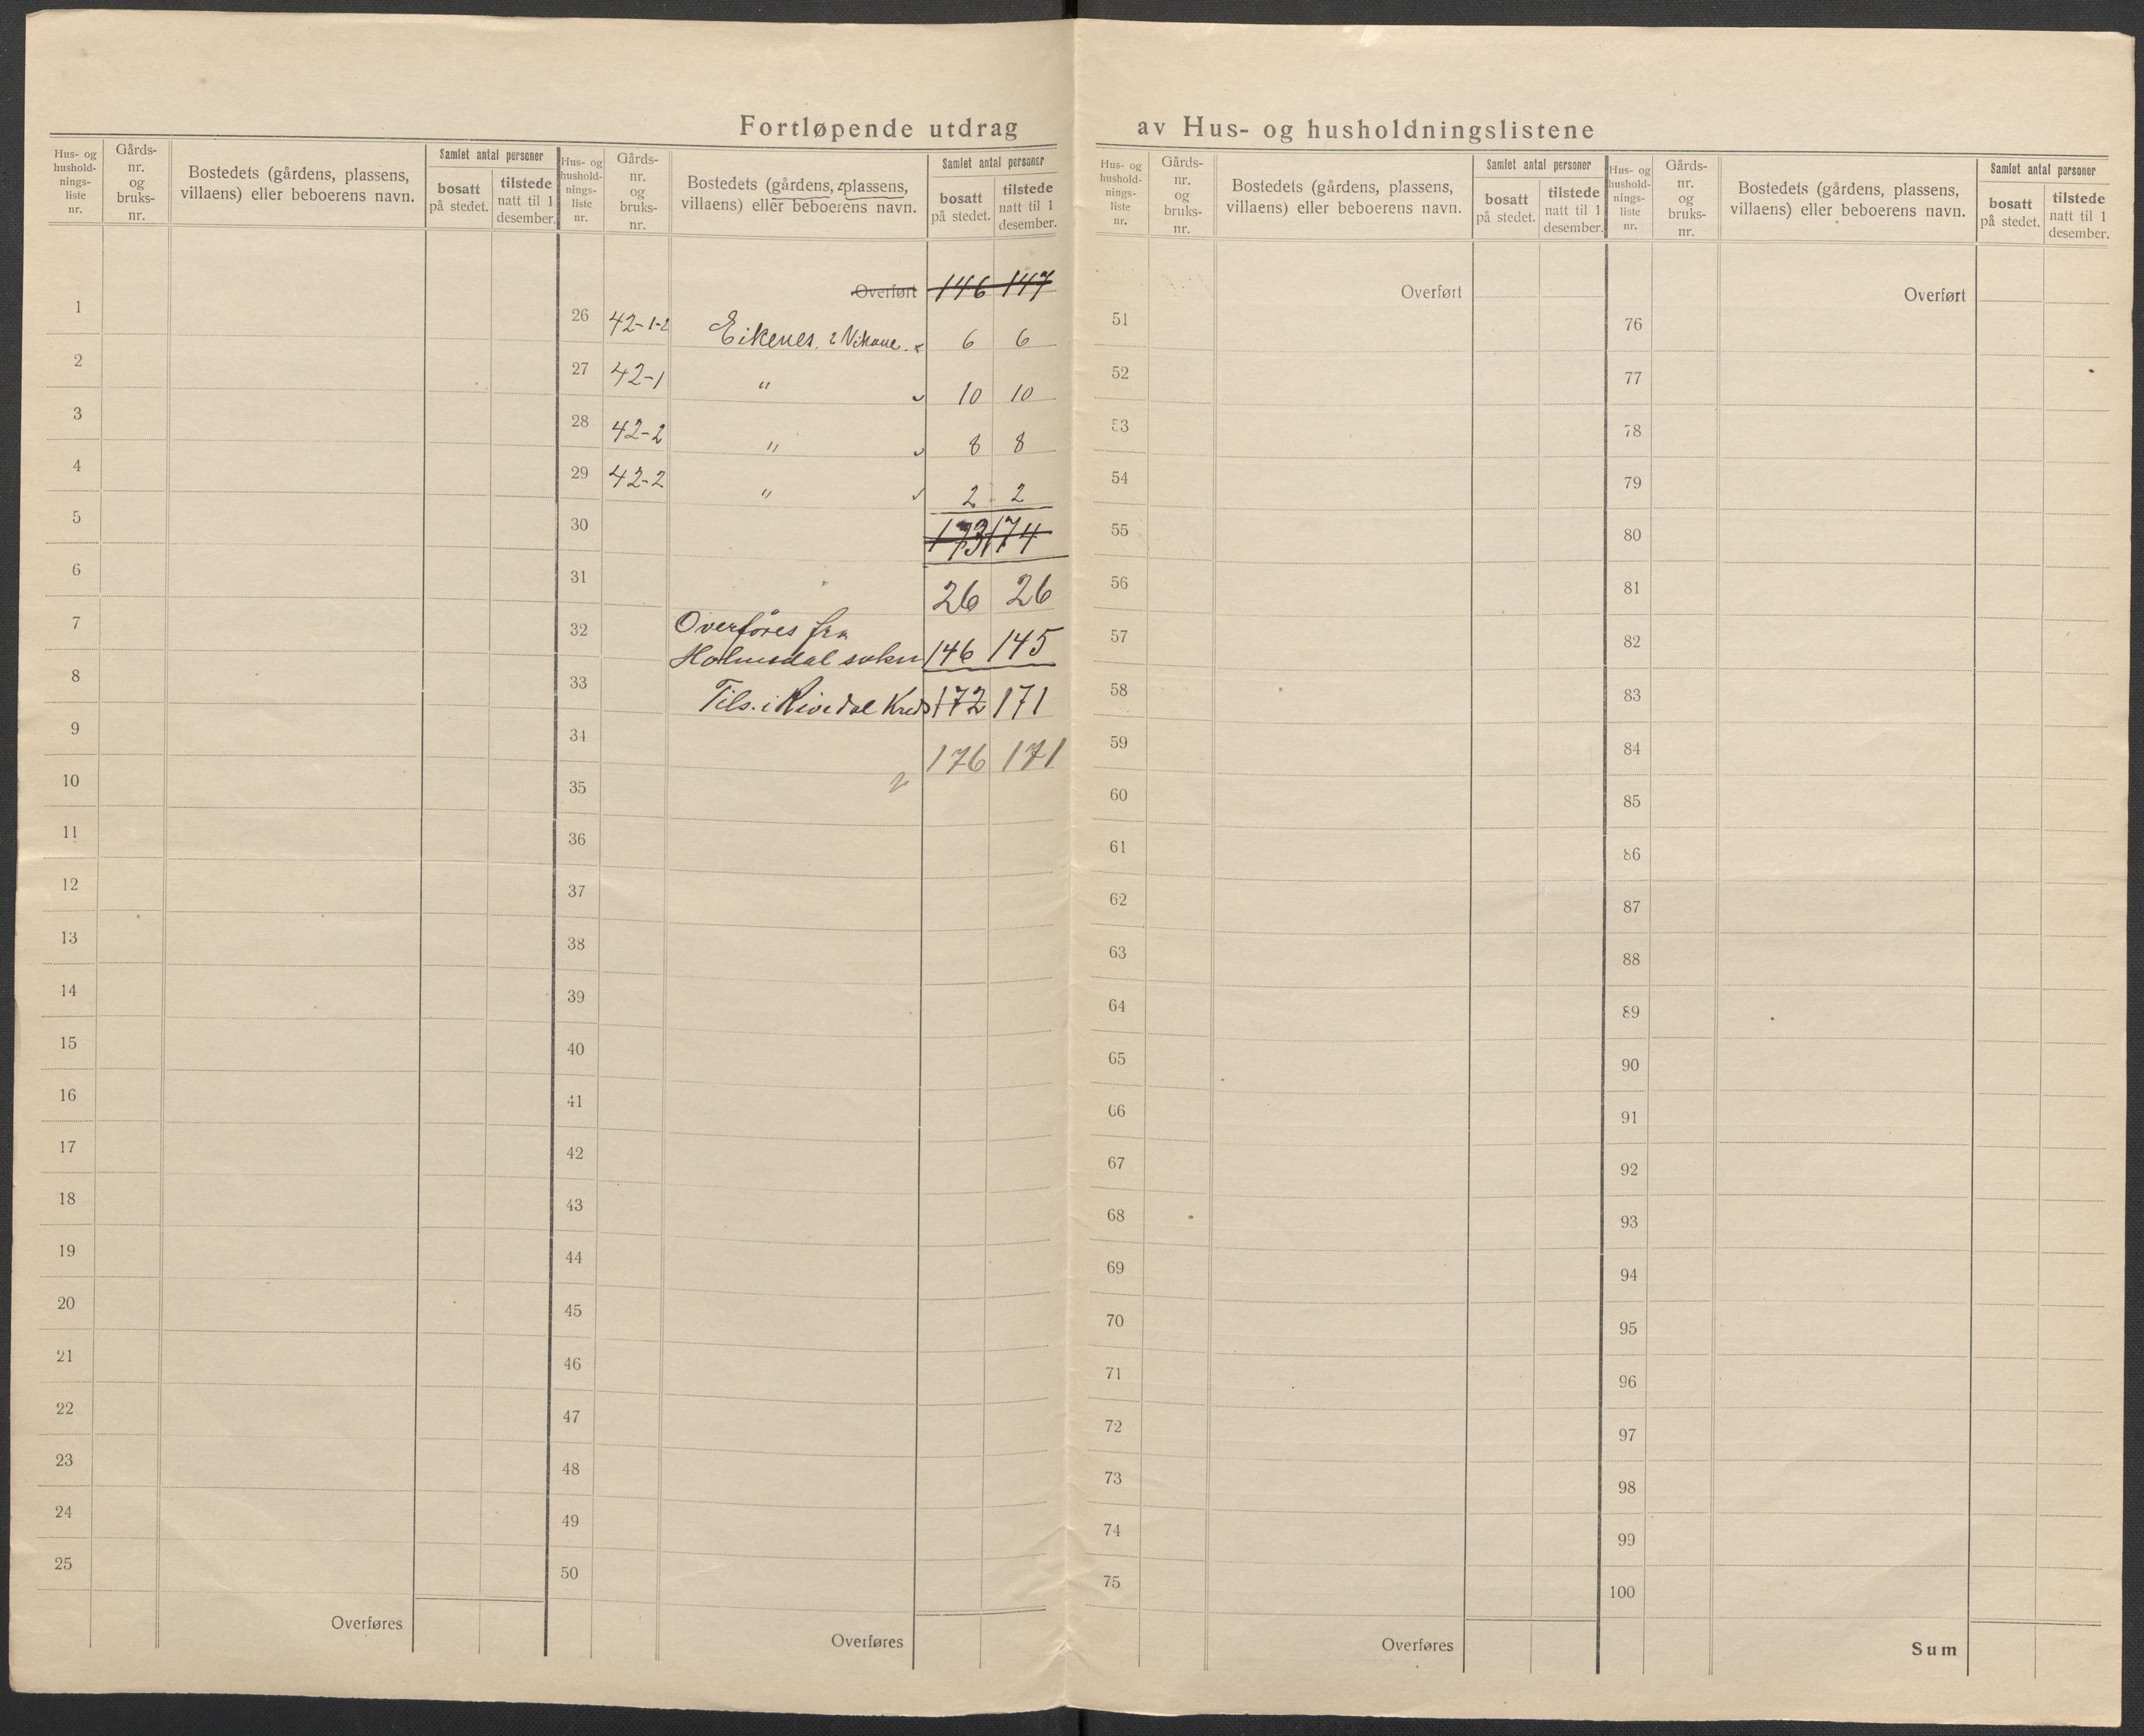 Fortløpende utdrag av Hus- og husholdningslistene
Hus- og hushold- nings- liste nr.
Gårds- nr. og bruks- nr.
Bostedets (gårdens, plassens, villaens) eller beboerens navn.
Samlet antal personer
bosatt på stedet.
tilstede natt til 1 desember.
1
2
3
4
5
6
7
8
9
10
11
12
13
14
15
16
17
18
19
20
21
22
23
24
25
Overføres
Hus- og hushold- nings- liste nr.
Gårds- nr. og bruks- nr.
Bostedets (gårdens, plassens, villaens) eller beboerens navn.
Samlet antal personer
bosatt på stedet.
tilstede natt til 1 desember.
Overført 146 147
26 42-1-2 Eikenes. 6 6
27 42-1 " 10 10
28 42-2 " 8 8
29 42-2 " 2 2
30 173 174
31 26 26
32 Overføres fra
Holmedal sokn 146 145
33 Tils. i Rivedal Kreds 172 171
34 176 171
35
36
37
38
39
40
41
42
43
44
45
46
47
48
49
50
Overføres
Hus- og hushold- nings- liste nr.
Gårds- nr. og bruks- nr.
Bostedets (gårdens, plassens, villaens) eller beboerens navn.
Samlet antal personer
bosatt på stedet.
tilstede natt til 1 desember.
Overført
51
52
53
54
55
56
57
58
59
60
61
62
63
64
65
66
67
68
69
70
71
72
73
74
75
Overføres
Hus- og hushold- nings- liste nr.
Gårds- nr. og bruks- nr.
Bostedets (gårdens, plassens, villaens) eller beboerens navn.
Samlet antal personer
bosatt på stedet.
tilstede natt til 1 desember.
Overført
76
77
78
79
80
81
82
83
84
85
86
87
88
89
90
91
92
93
94
95
96
97
98
99
100
Sum